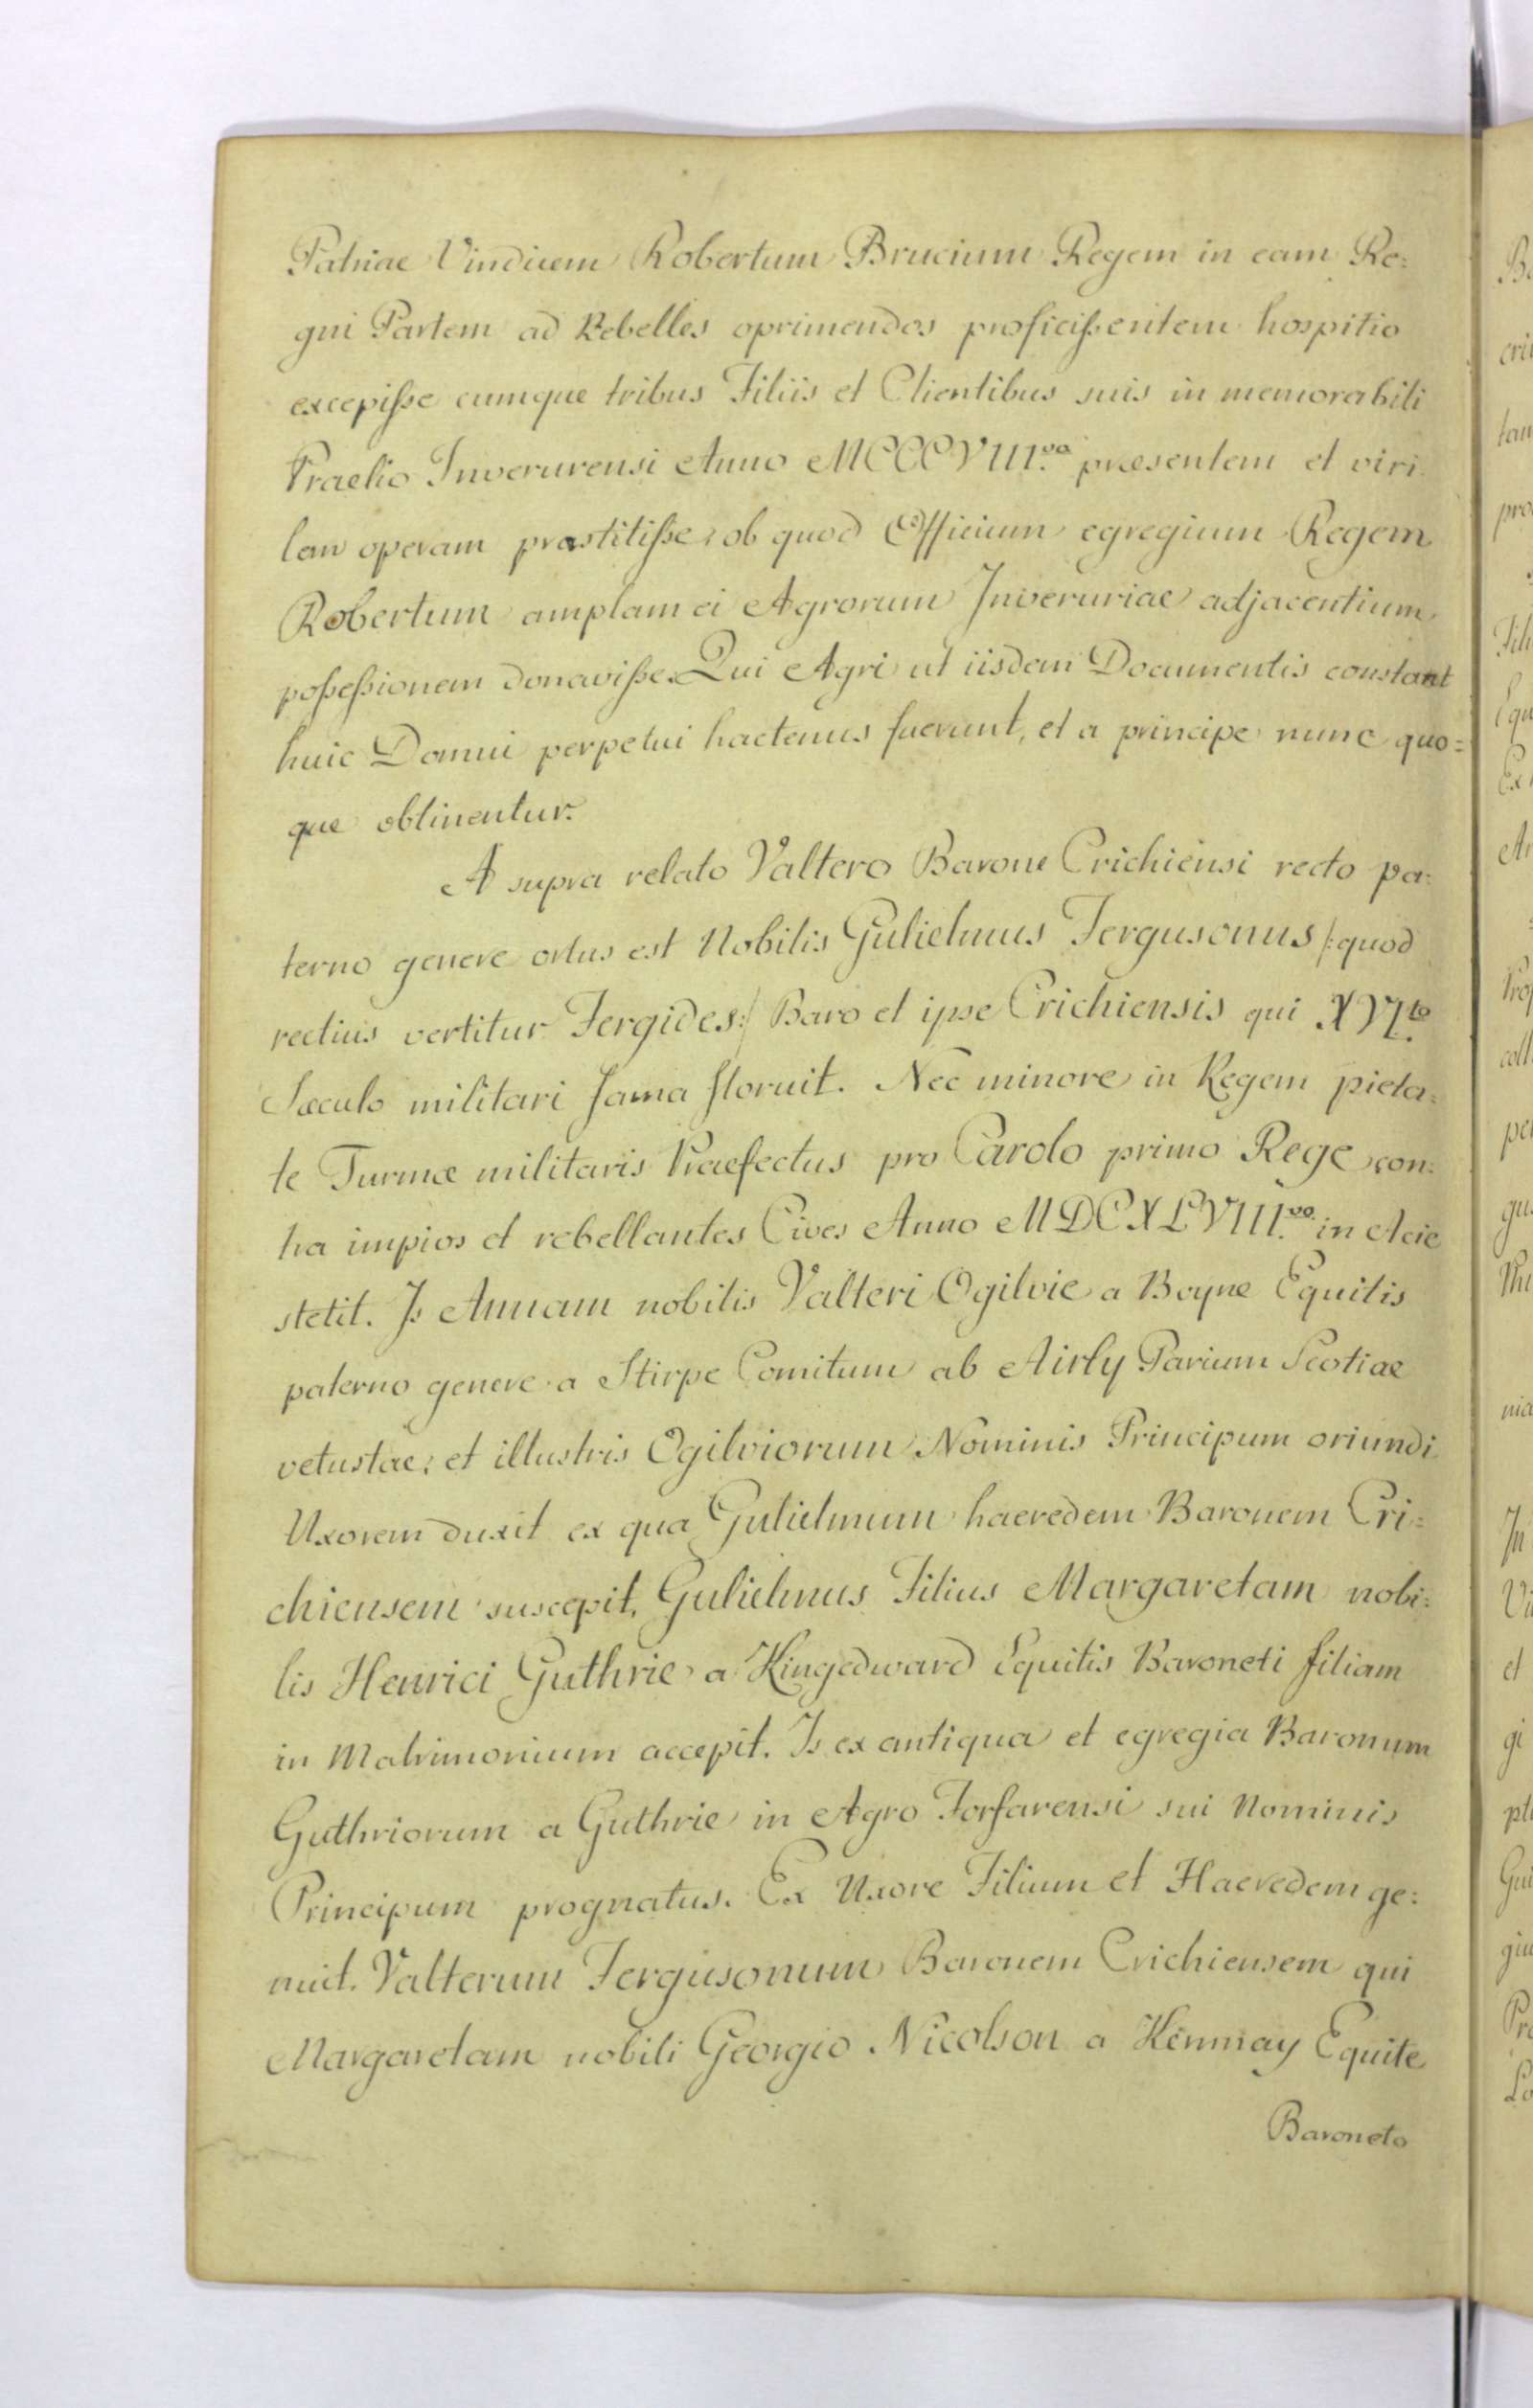 Patriae Vindicem Robertum Brucium Regem in eam Re=
gni Partem ad Rebelles oprimendos proficißentem hospitio
excepiße eumque tribus Filiis et Clientibus suis in memorabili
Praelio Inverurensi Anno MCCCVIII.vo praesentem et viri
lem operam praestitiße; ob quod Officium egregium Regem
Robertum amplam ei Agrorum Inveruriae adjacentium
poßeßionem donaviße. Qui Agri ut iisdem Documentis constant
huic Domui perpetui hactenus fuerunt, et a principe nunc quo=
que obtinentur.
A supra relato Valtero Barone Crichiensi recto pa=
terno genere ortus est Nobilis Gulielmus Fergusonus /:quod
rectius vertitur Fergides:/ Baro et ipse Crichiensis qui XVI.to
Sæculo militari fama floruit. Nec minore in Regem pieta=
te Turmæ militaris Praefectus pro Carolo primo Rege con=
tra impios et rebellantes Cives Anno MDCXLVIII.vo in Acie
stetit. Is Annam nobilis Valteri Ogilvie a Boyne Equitis
paterno genere a Stirpe Comitum ab Airly Parium Scotiae
vetustae; et illustris Ogilviorum Nominis Principum oriundi
Uxorem duxit ex qua Gulielmum haeredem Baronem Cri=
chiensem suscepit, Gulielmus Filius Margaretam nobi=
lis Henrici Guthrie a Kingedward Equitis Baroneti filiam
in Matrimonium accepit. Is ex antiqua et egregia Baronum
Guthriorum a Guthrie in Agro Forfarensi sui Nominis
Principum prognatus. Ex Uxore Filium et Haeredem ge=
nuit. Valterum Fergusonum Baronem Crichiensem qui
Margaretam nobili Georgio Nicolson a Kenmay Equite
Baroneto